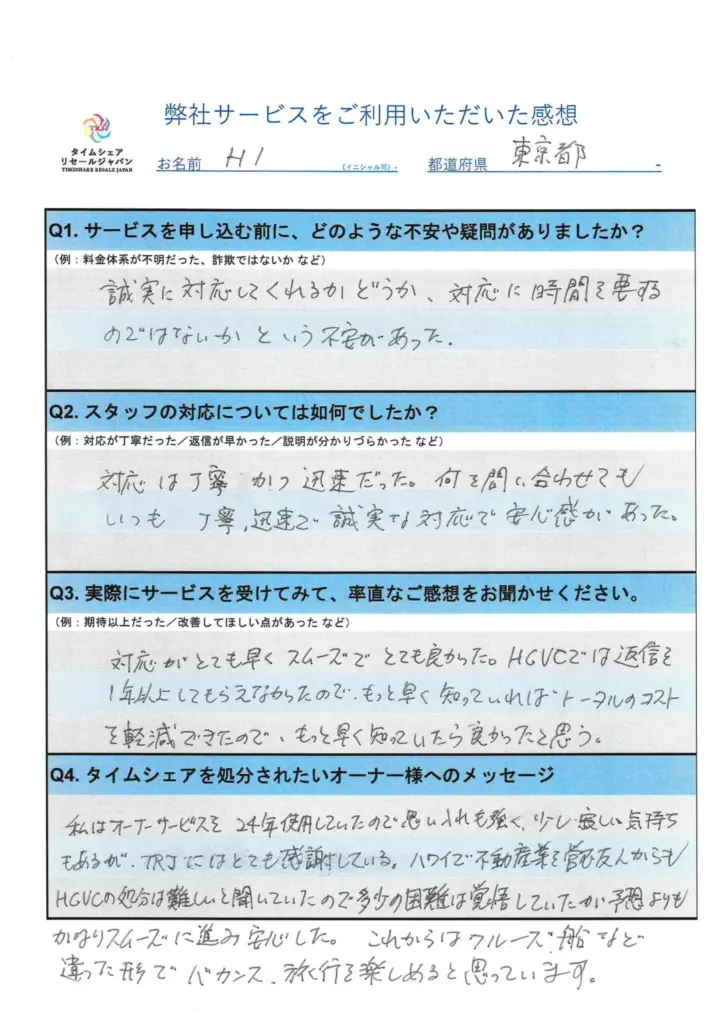 弊社サービスをご利用いただいた感想
TRJ
タイムシェア
リセールジャパン
TIMESHARE RESALE JAPAN
お名前 H I (イニシャル可)-
都道府県 東京都 -
Q1. サービスを申し込む前に、どのような不安や疑問がありましたか？
(例：料金体系が不明だった、詐欺ではないか など)
誠実に対応してくれるかどうか、対応に時間を要する
のではないかという不安があった.
Q2. スタッフの対応については如何でしたか？
(例：対応が丁寧だった／返信が早かった／説明が分かりづらかった など)
対応は丁寧かつ迅速だった。何を問い合わせても
いつも丁寧,迅速で誠実な対応で安心感があった。
Q3. 実際にサービスを受けてみて、率直なご感想をお聞かせください。
(例：期待以上だった／改善してほしい点があった など)
対応がとても早くスムーズでとても良かった。HGVCでは返信を
1年以上してもらえなかったので、もっと早く知っていればトータルのコスト
を軽減できたので、もっと早く知っていたら良かったと思う。
Q4. タイムシェアを処分されたいオーナー様へのメッセージ
私はオーナーサービスを24年使用していたので思い入れも強く、少し寂しい気持ち
もあるが、TRJにはとても感謝している。ハワイで不動産業を営む友人からも
HGVCの処分は難しいと聞いていたので多少の困難は覚悟していたが予想よりも
かなりスムーズに進み安心した。これからはクルーズ船など
違った形でバカンス、旅行を楽しめると思っています。